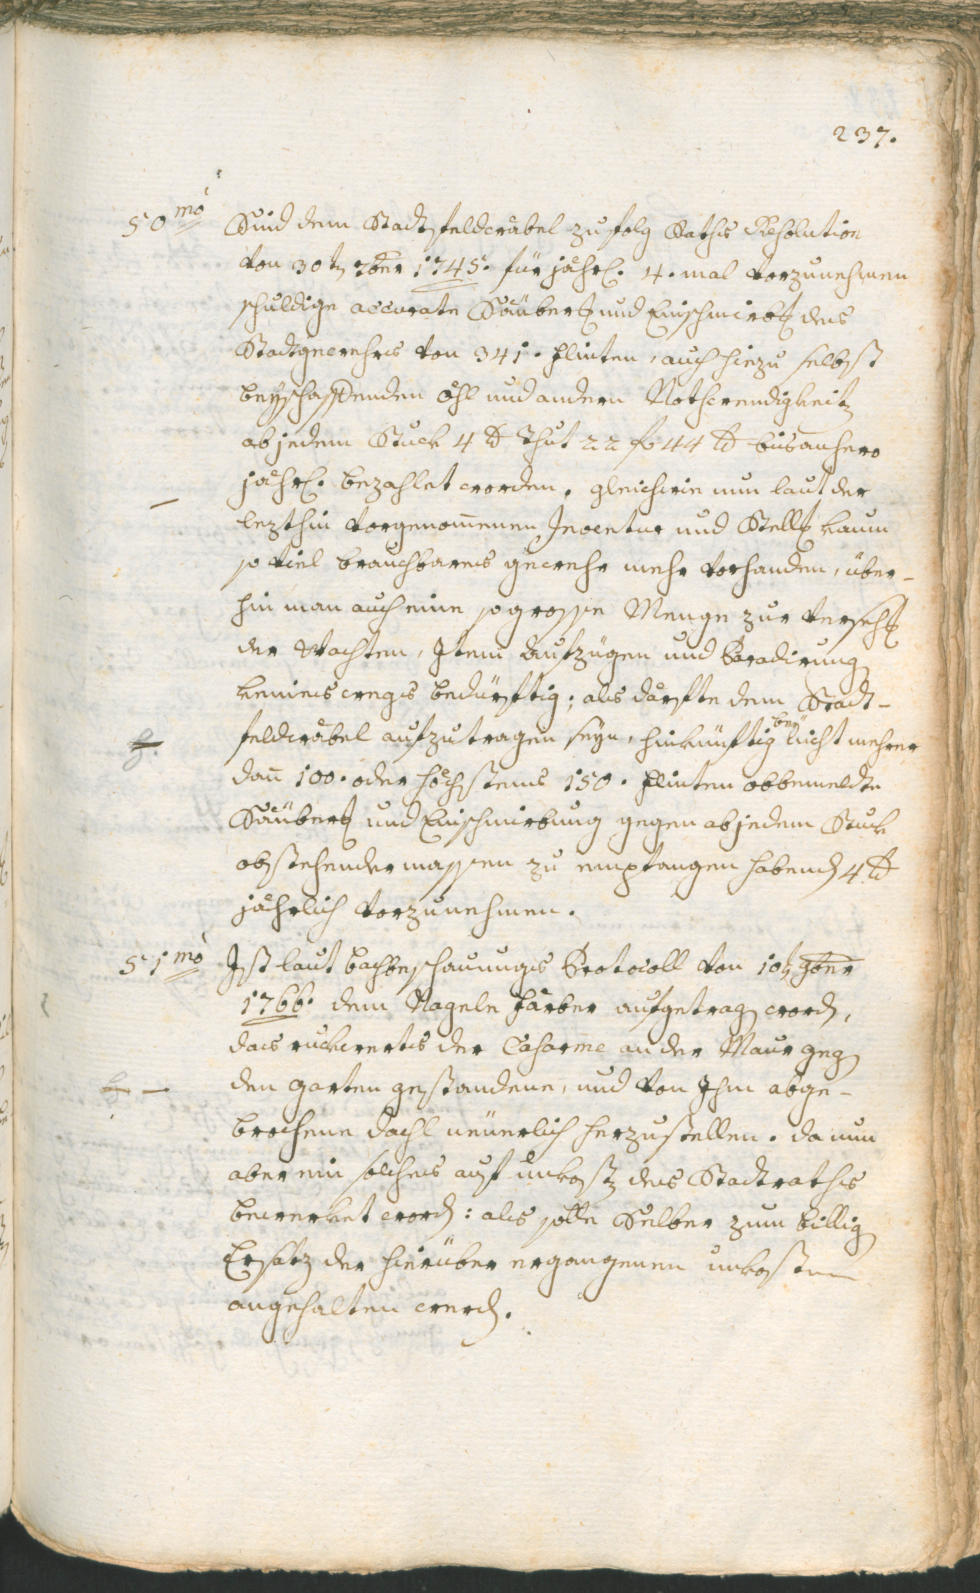 237.
50mo Sind dem Stadtfeldwäbel zufolg Raths Resolution
von 30tn 7ber 1745. für jährl. 4. mal vorzunehmen
schuldige accurate Säuber: und Einschmirb: des
Stadtgewehrs von 341. Flinten, auch hiezu selbst
beyschaffenden Öhl und andern Nothwendigkeitn
ab jedem Stuck 4 d Thut 22 f 44 d bis anhero
jährl. bezahlet worden. gleichwie nun laut der
lezthin vorgenommenen Inventur und Stell: kaum
so viel brauchbares gewehr mehr vorhanden, über-
hin man auch eine so grosse Menge zur Verseh:
der Wachten, Item Aufzügen und Paradirung
keineswegs bedürftig; als därfte dem Stadt-
feldwäbel aufzutragen seyn, hinkünftig bey nicht mehrer
dan 100. oder höchstens 150. Flinten obbemeldte
Säuber: und Einschmirbung gegen ab jedem Stuck
obstehendermassen zu empfangen habend 4 d
jährlich vorzunehmen.
51mo Ist laut bachbeschauungs Protocoll von 10tn 9ber
1766. dem Nagele Färber aufgetragn wordn,
das ruckwerts der Casarme an der Maur gegn
den garten gestandene, und von Ihm abge-
brochene dachl neuerlich herzustellen. da nun
aber ein solches auf unkostn des Stadtraths
bewerket wordn: als solle Selber zum billign
Ersatz der hierüber ergangenen unkosten
angehalten werdn.